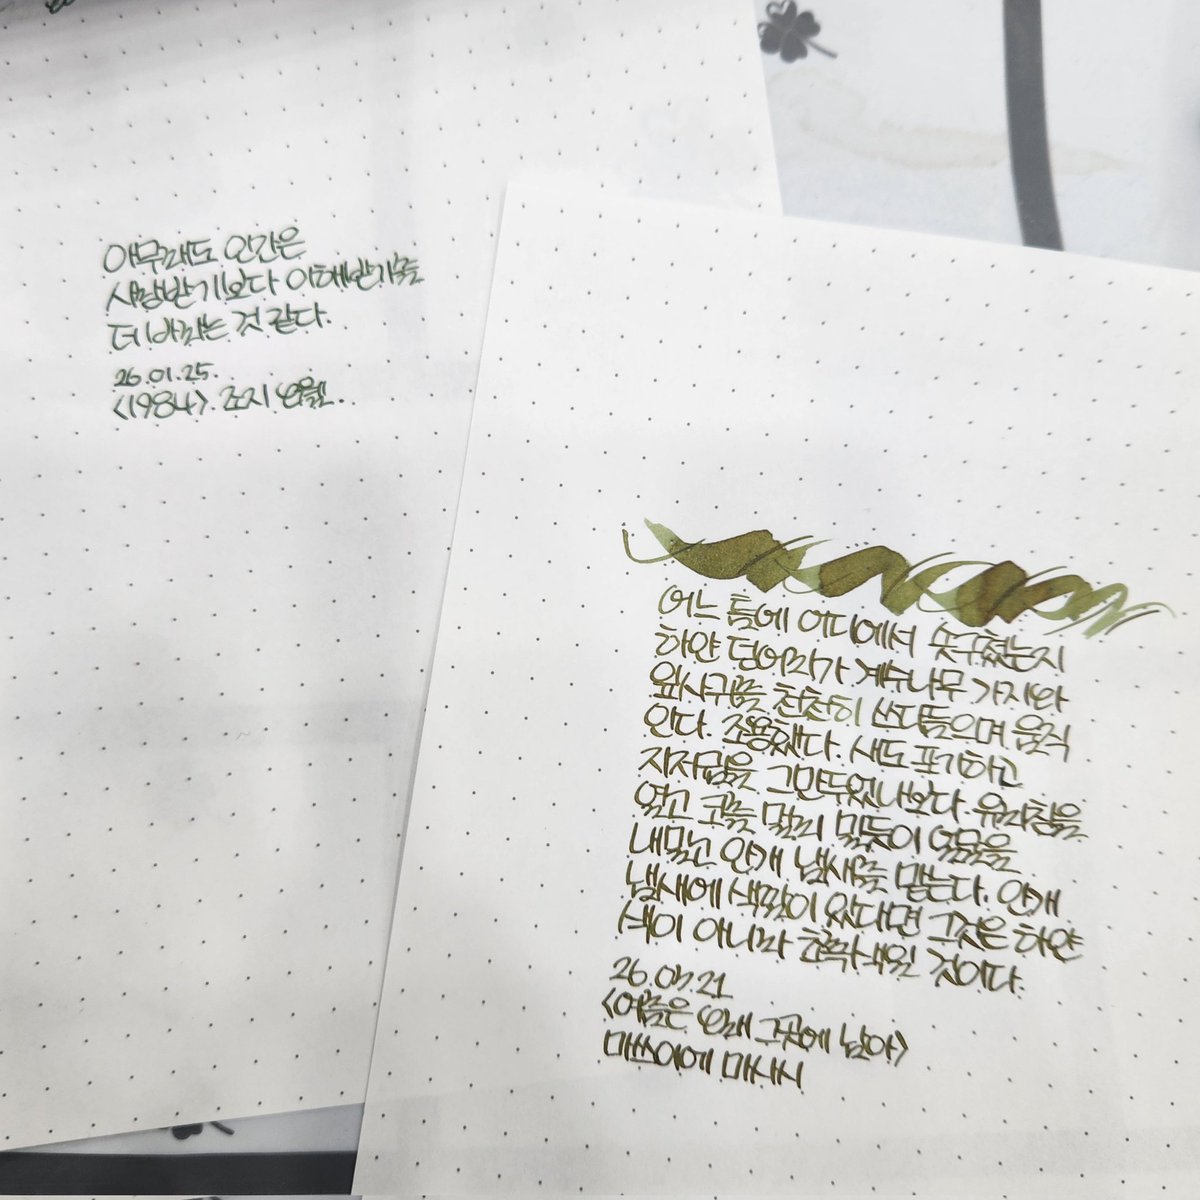 아무래도 인간은
사랑받기보다 이해받기를
더 바라는 것 같다.
26.01.25.
<1984>. 조지 오웰.
어느 틈에 어디에서 솟구쳤는지
하얀 덩어리가 계수나무 가지와
잎사귀를 천천히 쓰다듬으며 움직
인다. 조용했다. 새도 포기하고
지저귐을 그만두었나보다. 유리창을
열고 코를 멀리 밀듯이 얼굴을
내밀고 안개 냄새를 맡는다. 안개
냄새에 색깔이 있다면 그것은 하얀
색이 아니라 초록색일 것이다.
26.07.21
<여름은 오래 그곳에 남아>
마쓰이에 마사시